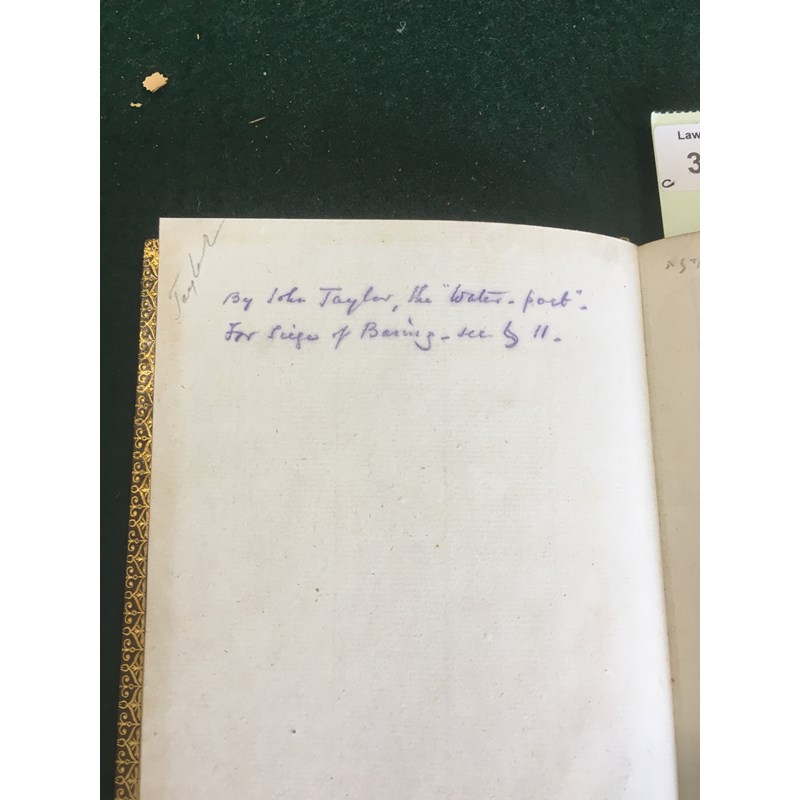 Taylor
By John Taylor, the "Water-poet".
For Siege of Basing - see 11.
Law
3